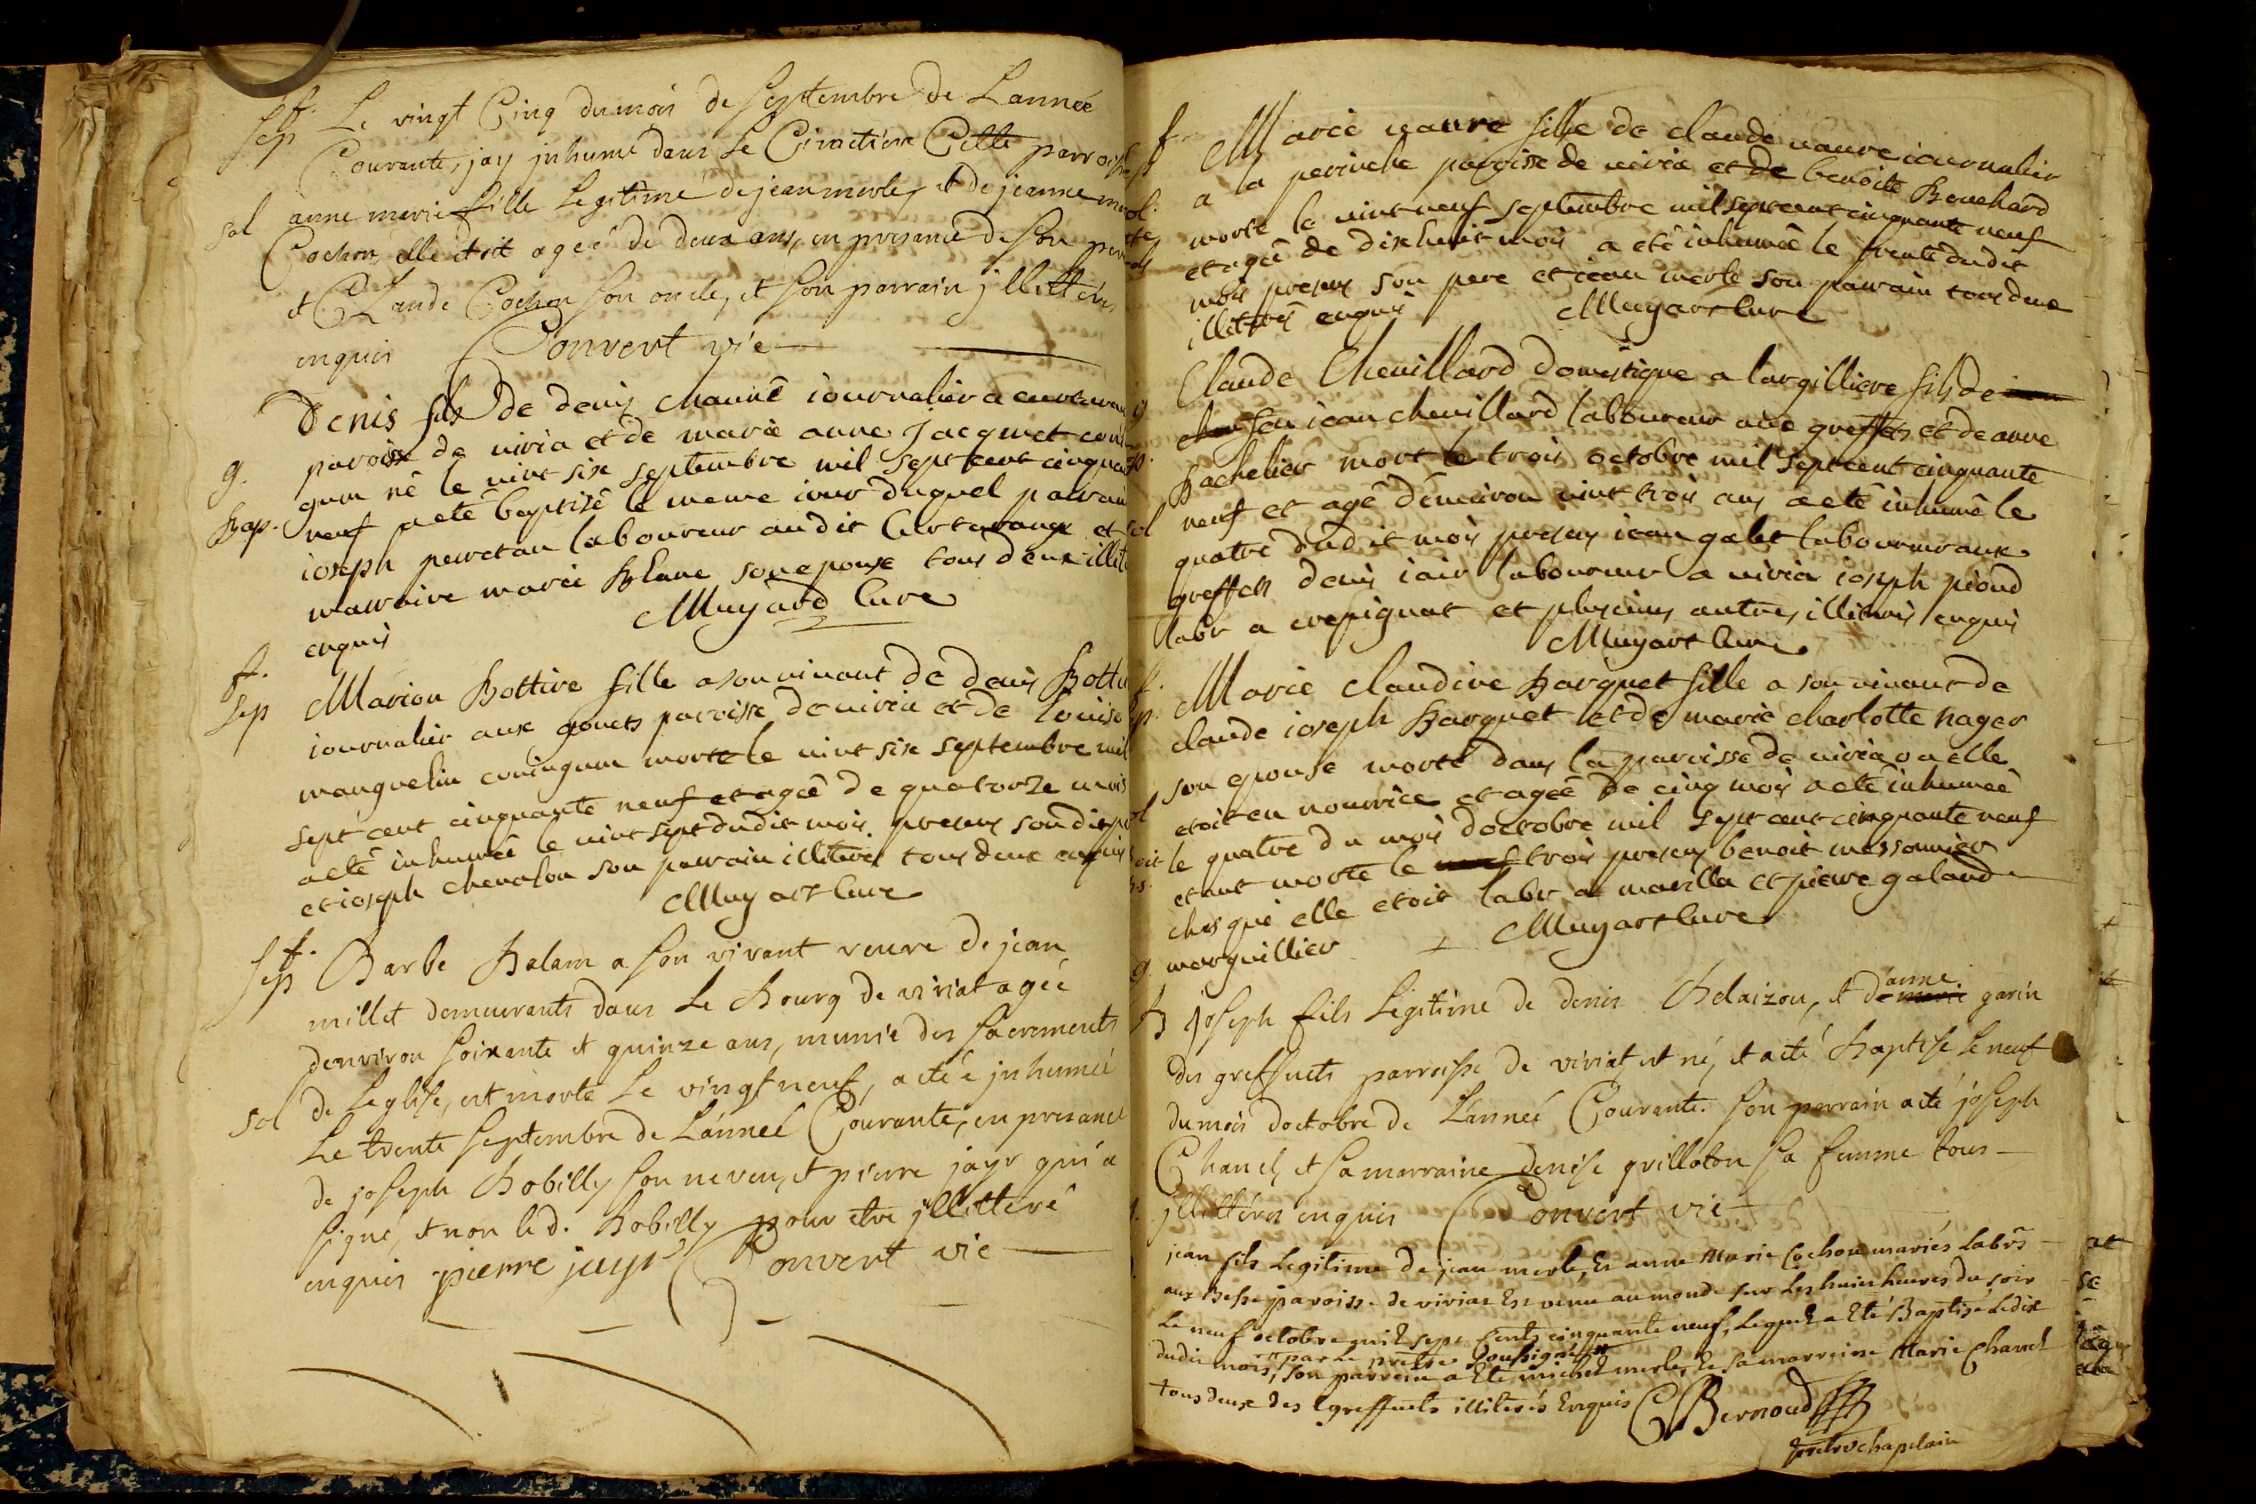 f.
Sep
Le vingt Cinq du mois de Septembre de L'année
Courante, jay jnhumé dans Le Cimetiere Cette parroisse
sol anne marie fille Legitime de jean merle, et de jeanne
Cochon, elle etoit ageé de deux ans, en presance de son pere
et CLaude Cochon son oncle, et son parrain jllitterés
enquis Convert vic
Denis fils de denis channé iournalier a curtaran
g. paroisse de viria et de marie anne Jacquet
né le vint six septembre mil sept cent cinquante
bap. neuf a eté baptisé le meme iour duquel parrain
ioseph perretan laboureur audit Curtarange et
marraine marie blanc son epouse tous deux illite
enquis Muyard Cure
f.
Sep Marion Bottire fille a son vivant de denis Botti
iournalier aux gouets paroisse de viria et de louise
manguelin morte le vint six septembre mil
sept cent cinquante neuf et ageé de quatorze mois
a eté inhumeé le vint sept dudit mois presens son dit
et ioseph chevalon son parrain illiterés tous deux enquis
Muyart Cure
f.
Sep Barbe Balam a son vivant veuve de jean
millet demeurants dans Le Bourg de viriat ageé
denviron soixante et quinze ans, munie des sacrements
sol de Leglise, est morte Le vingt neuf, a eteé jnhumeé
Le trente septembre de L'anneé Courante, en presance
de joseph Bobilly son neveu, et pierre jayr qui a
signé, et non led. Bobilly pour etre jllitteré
enquis pierre jayr Convert vic
f. Marie vavre fille de claude vavre iournalier
a la peririche paroisse de viria et de benoite Bouchard
morte le vint neuf septembre mil sept cent cinquante neuf
et ageé de dix huit mois a eté inhumeé le trente dudit
mois presens son pere et iean merle son parrain tous deux
illiterés enquis Muyart Cure
Claude Chevillard domestique a largilliere fils de
feu iean chevillard laboureur aux greffets et de anne
Bachelier mort le trois octobre mil sept cent cinquante
neuf et agé d'environ vint trois ans a eté inhumé le
quatre dudit mois presens iean galet laboureur aux
greffets denis iair laboureur a viria ioseph pioud
labr a crepignat et plusieurs autres illiterés enquis
Muyart Cure
Marie claudine Barquet fille a son vivant de
claude ioseph Barquet et de marie charlotte nager
son epouse morte dans la paroisse de viria ou elle
etoit en nourrice et ageé de cinq mois a eté inhumeé
le quatre du mois doctobre mil sept cent cinquante neuf
etant morte le trois presens benoit messonnier
ches qui elle etoit labr a marilla et pierre galand
marguillier Muyart Cure
b joseph fils Legitime de denis Chelaizou, et d'anne garin
des greffuets parroisse de viriat est né, et a eté Baptisé le neuf
du mois doctobre de L'anneé Courante. son parrain a eté joseph
Chanel, et sa marraine denise grilloton sa femme tous
jllitterés enquis Convert vic
jean fils Legitime de jean merle, Et anne Marie Cochon mariés Labrs
aux Besse paroisse de viriat Est venu au monde sur Les huit heures du soir
Le neuf octobre mil sept Cents cinquante neuf, Lequel a Eté Baptisé Le dix
dudit mois, par Le pretre soussigné, son parrein a Eté michel merle, Et sa marreine Marie Chanel
tous deux des greffuets illiterés Enquis C Bernoud
pretre chapelain